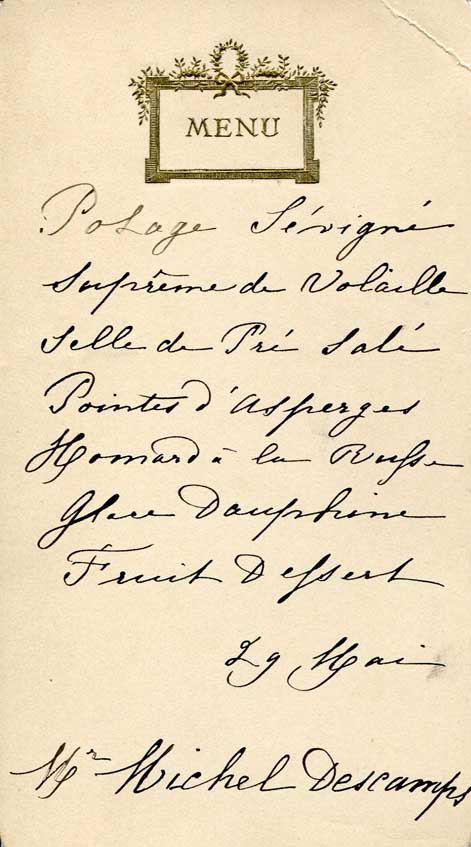 MENU
Potage Sévigné
Suprême de Volaille
Selle de Pré Salé
Pointes d'Asperges
Homard à la Russe
Glace Dauphine
Fruit Dessert
29 Mai
Mr Michel Descamps